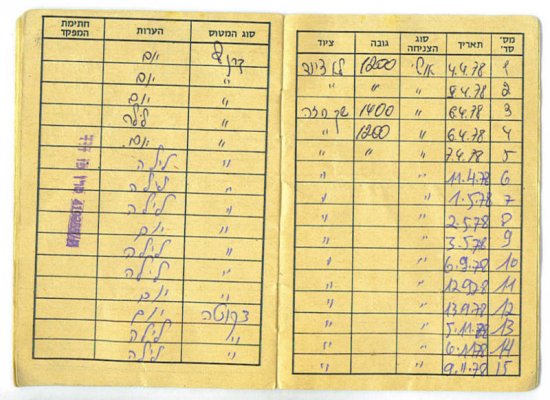 מס' סד' תאריך סוג הצניחה גובה ציוד
1 4.4.78 1200 ללא ציוד
2 " " "
3 6.4.78 " 1400 שק חזה
4 6.4.78 " 1200 "
5 7.4.78 " " "
6 11.4.78 " "
7 1.5.78 " "
8 2.5.78 " "
9 3.5.78 " "
10 6.9.78 " "
11 12.9.78 " "
12 13.9.78 " "
13 5.11.78 " "
14 6.11.78 " "
15 9.11.78 " "
סוג המטוס הערות חתימת המפקד
יום
" יום
" יום
" לילה
" יום
" לילה
" לילה
" לילה
" יום
" לילה
" לילה
" יום
דקוטה יום
" לילה
" לילה